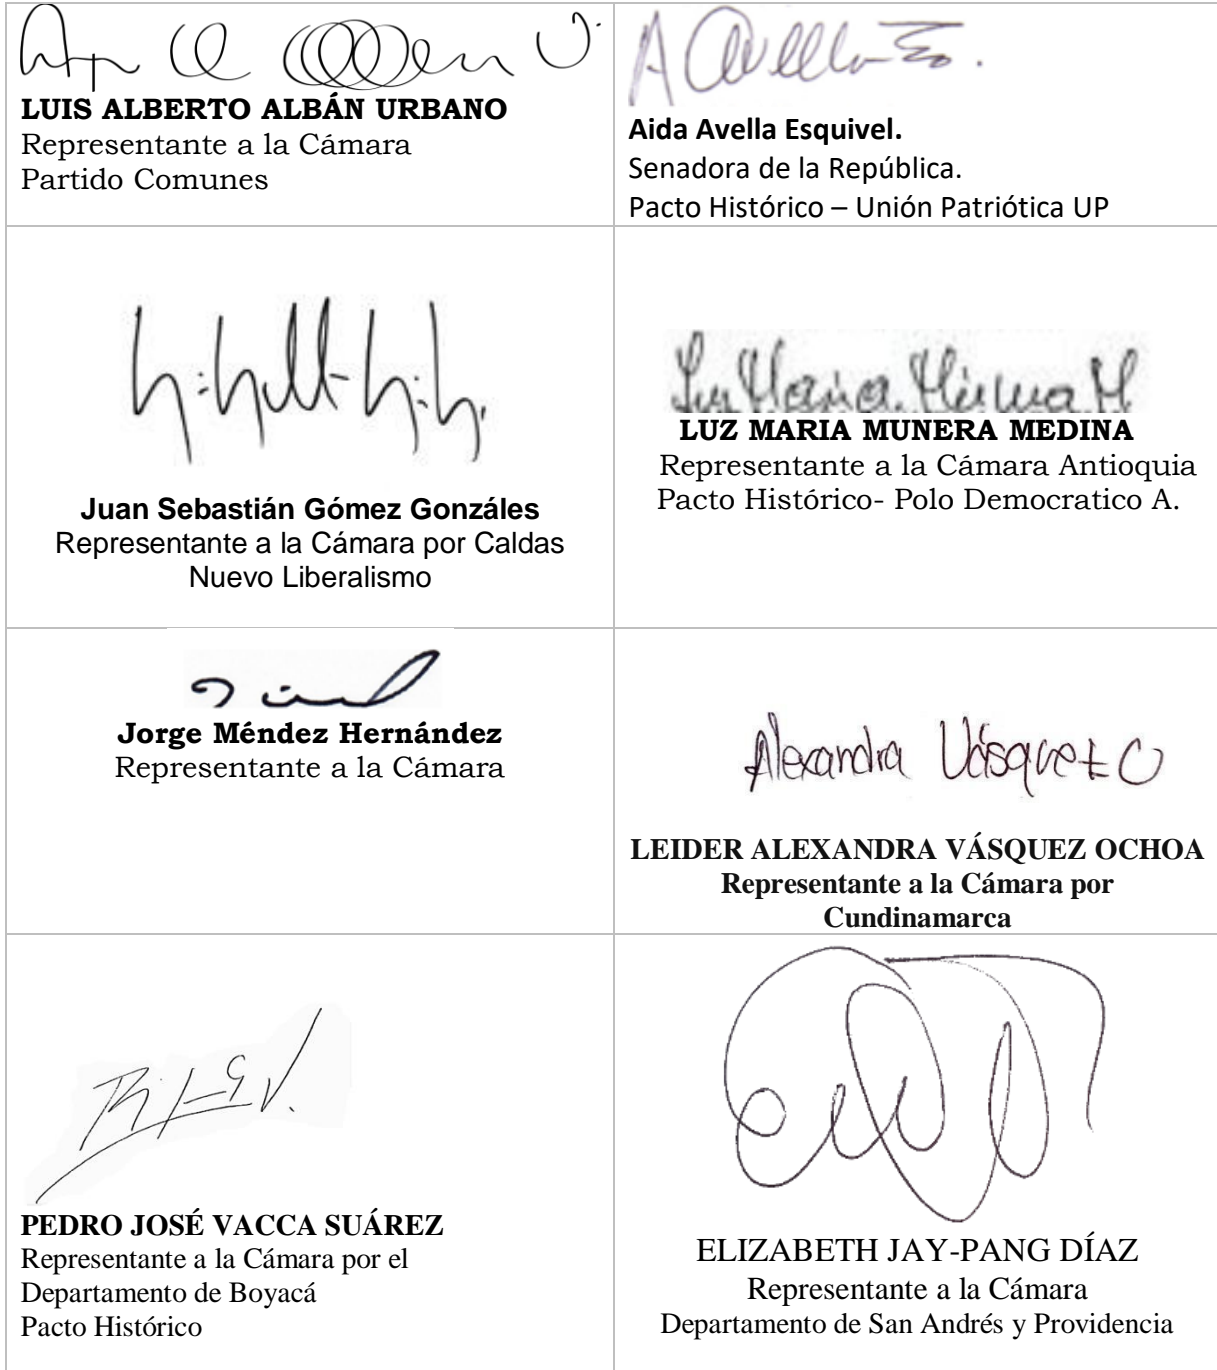 LUIS ALBERTO ALBÁN URBANO
Representante a la Cámara
Partido Comunes
A Avella E.
Aida Avella Esquivel.
Senadora de la República.
Pacto Histórico – Unión Patriótica UP
Juan Sebastián Gómez Gonzáles
Representante a la Cámara por Caldas
Nuevo Liberalismo
Luz Maria Múnera M
LUZ MARIA MUNERA MEDINA
Representante a la Cámara Antioquia
Pacto Histórico- Polo Democratico A.
Jorge Méndez Hernández
Representante a la Cámara
Alexandra Vásquez O
LEIDER ALEXANDRA VÁSQUEZ OCHOA
Representante a la Cámara por
Cundinamarca
PEDRO JOSÉ VACCA SUÁREZ
Representante a la Cámara por el
Departamento de Boyacá
Pacto Histórico
ELIZABETH JAY-PANG DÍAZ
Representante a la Cámara
Departamento de San Andrés y Providencia